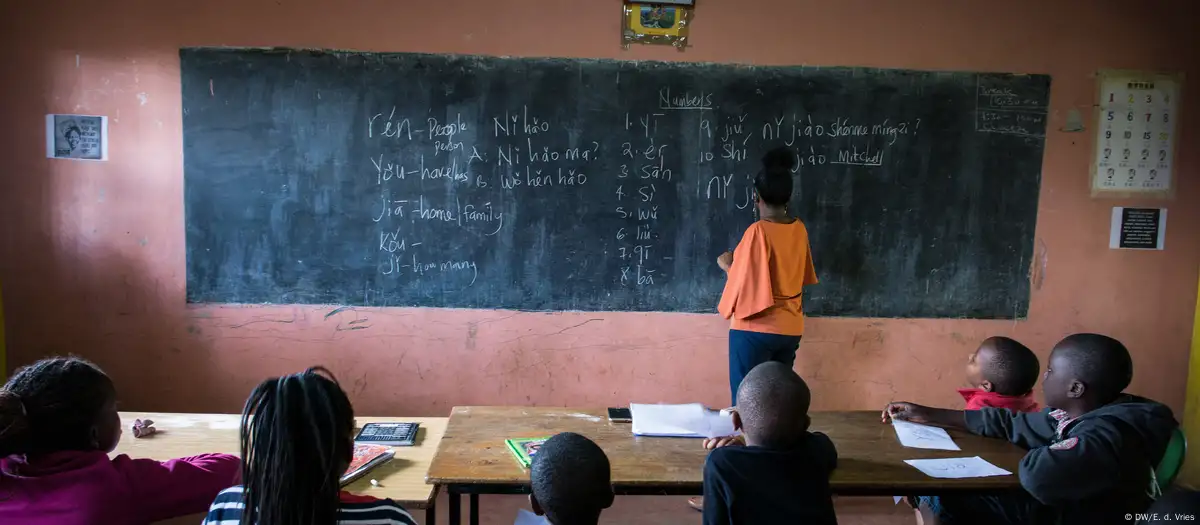 Numbers
rén - People
person
Yǒu - have/has
jiā - home/family
kǒu -
Jǐ - how many
Nǐ hǎo
A: Nǐ hǎo ma?
B. Wǒ hěn hǎo
1. yī
2. èr
3. sān
4. sì
5. wǔ
6. liù
7. qī
8 bā
9. jiǔ
10 shí
nǐ jiào shénme míngzi?
jiào Mitchell
nǐ
1 2 3 4
5 6 7 8
9
© DW/E. d. Vries